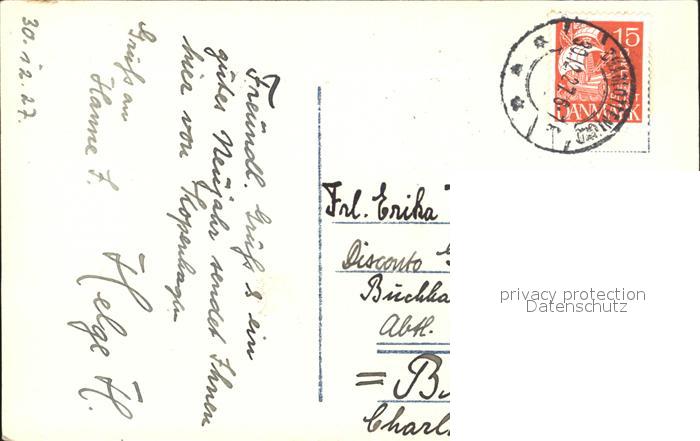 30.12.27.
Freundl. Gruß & ein
gutes Neujahr sendet Ihnen
hier von Kopenhagen
Helge H.
Gruß an
Hanne J.
15
DANMARK
30.12.27.6-7
Frl. Erika
Disconto
Buchha
Abtl.
= B
Charl
privacy protection
Datenschutz